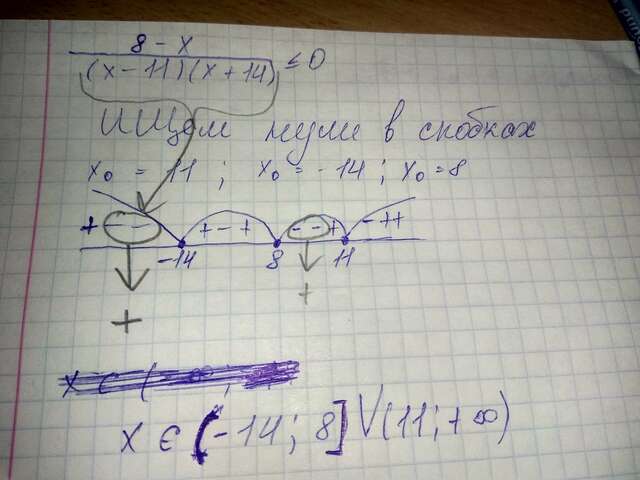 8 - x
(x - 11)(x + 14) ≤ 0
Ищем нули в скобках
x₀ = 11 ; x₀ = -14 ; x₀ = 8
+ - - + - + - - + - + +
-14 8 11
+ +
x ∈ (-14; 8] ∨ (11; +∞)